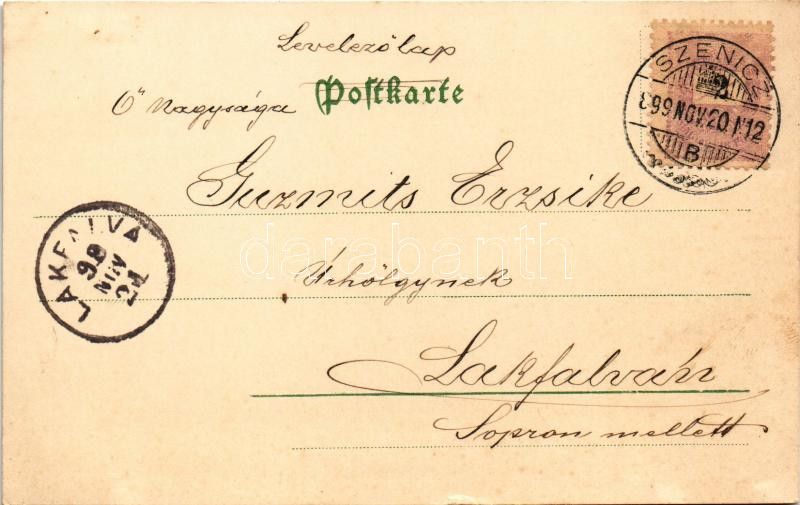 Levelezőlap
Postkarte
Ő Nagysága
SZENICZ
899 NOV. 20. N12
B
Guzmits Erzsike
LAKFALVA
NOV
21
Úrhölgynek
darabanth
Lakfalván
Sopron mellett